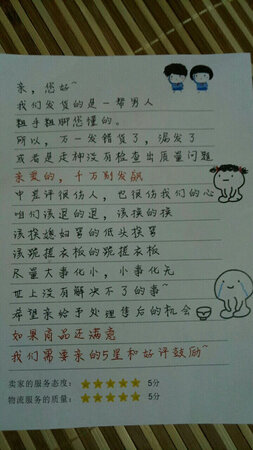 亲，您好~
我们发货的是一帮男人
粗手粗脚您懂的。
所以，万一发错货了，漏发了
或者是走神没有检查出质量问题
亲爱的，千万别发飙
中差评很伤人，也很伤我们的心
咱们该退的退，该换的换
该挨媳妇骂的低头挨骂
该跪搓衣板的跪搓衣板
尽量大事化小，小事化无
世上没有解决不了的事~
希望亲给予处理售后的机会
如果商品还满意
我们需要亲的5星和好评鼓励~
卖家的服务态度：★★★★★ 5分
物流服务的质量：★★★★★ 5分